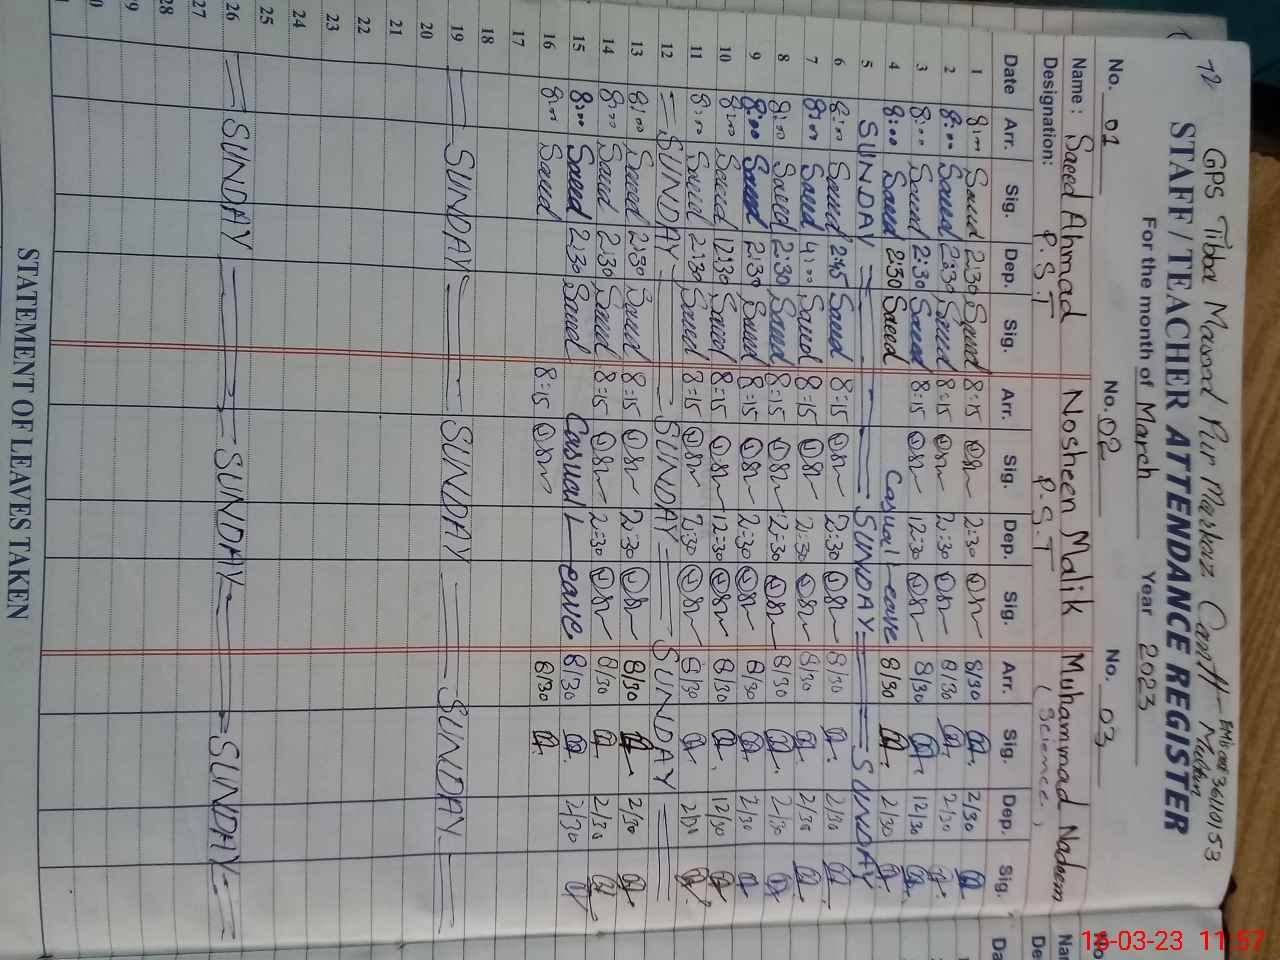 72 GPS Tibba Masood Pur Markaz Cantt - Multan
EMIS code 36110153
STAFF / TEACHER ATTENDANCE REGISTER
For the month of March Year 2023
No. 01 No. 02 No. 03
Name: Saeed Ahmad Nosheen Malik Muhammad Nadeem
Designation: P.S.T P.S.T (Science)
Date Arr. Sig. Dep. Sig. Arr. Sig. Dep. Sig. Arr. Sig. Dep. Sig.
1 8:00 Saeed 2:30 Saeed 8:15 2:30 8/30 2/30
2 8:00 Saeed 2:30 Saeed 8:15 2:30 8/30 2/30
3 8:00 Saeed 2:30 Saeed 8:15 12:30 8/30 12/30
4 8:00 Saeed 2:30 Saeed Casual Leave 8/30 2/30
5 SUNDAY SUNDAY SUNDAY
6 8:00 Saeed 2:45 Saeed 8:15 2:30 8/30 2/30
7 8:00 Saeed 4:00 Saeed 8:15 2:30 8/30 2/30
8 8:00 Saeed 2:30 Saeed 8:15 2:30 8/30 2/30
9 8:00 Saeed 2:30 Saeed 8:15 2:30 8/30 2/30
10 8:00 Saeed 12:30 Saeed 8:15 12:30 8/30 12/30
11 8:00 Saeed 2:30 Saeed 8:15 2:30 8/30 2/30
12 SUNDAY SUNDAY SUNDAY
13 8:00 Saeed 2:30 Saeed 8:15 2:30 8/30 2/30
14 8:00 Saeed 2:30 Saeed 8:15 2:30 8/30 2/30
15 8:00 Saeed 2:30 Saeed Casual Leave 8/30 2/30
16 8:00 Saeed 8:15 8/30
17
18
19 SUNDAY SUNDAY SUNDAY
20
21
22
23
24
25
26 SUNDAY SUNDAY SUNDAY
27
28
STATEMENT OF LEAVES TAKEN
16-03-23 11:57